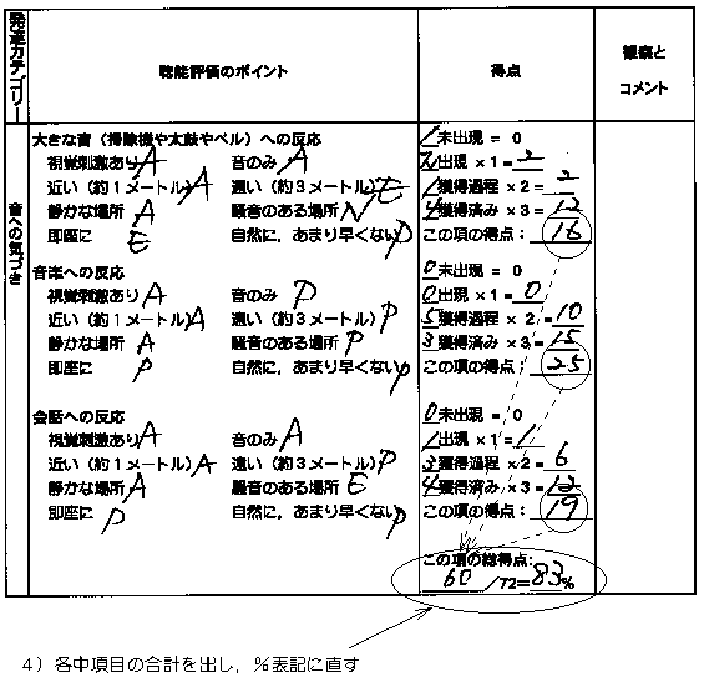 発達カテゴリー
聴能評価のポイント
得点
観察と
コメント
音への気づき
大きな音（掃除機や太鼓やベル）への反応
視覚刺激あり A 音のみ A
近い（約1メートル） A 遠い（約3メートル） E
静かな場所 A 騒音のある場所 N
即座に E 自然に，あまり早くない P
1 未出現 = 0
2 出現 ×1 = 2
1 獲得過程 ×2 = 2
4 獲得済み ×3 = 12
この項の得点： 16
音楽への反応
視覚刺激あり A 音のみ P
近い（約1メートル） A 遠い（約3メートル） P
静かな場所 A 騒音のある場所 P
即座に P 自然に，あまり早くない P
0 未出現 = 0
0 出現 ×1 = 0
5 獲得過程 × 2 = 10
3 獲得済み ×3 = 15
この項の得点： 25
会話への反応
視覚刺激あり A 音のみ A
近い（約1メートル） A 遠い（約3メートル） P
静かな場所 A 騒音のある場所 E
即座に P 自然に，あまり早くない P
0 未出現 = 0
1 出現 ×1 = 1
3 獲得過程 ×2 = 6
4 獲得済み ×3 = 12
この項の得点： 19
この項の総得点：
60 /72= 83 %
4）各中項目の合計を出し，％表記に直す